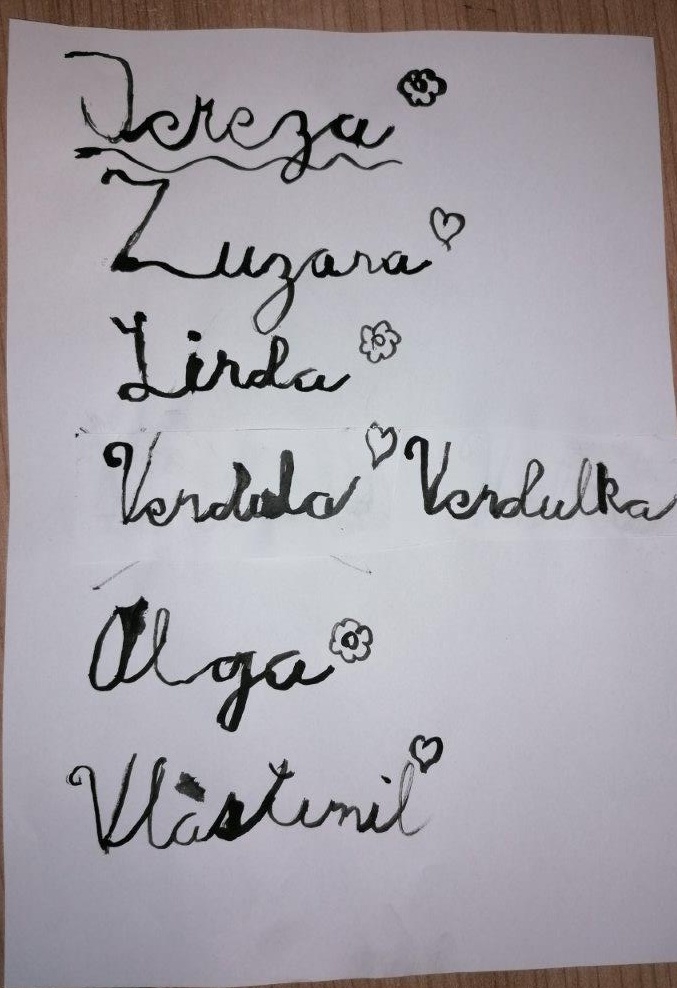 Tereza
Zuzana
Linda
Vendula Vendulka
Olga
Vlastimil